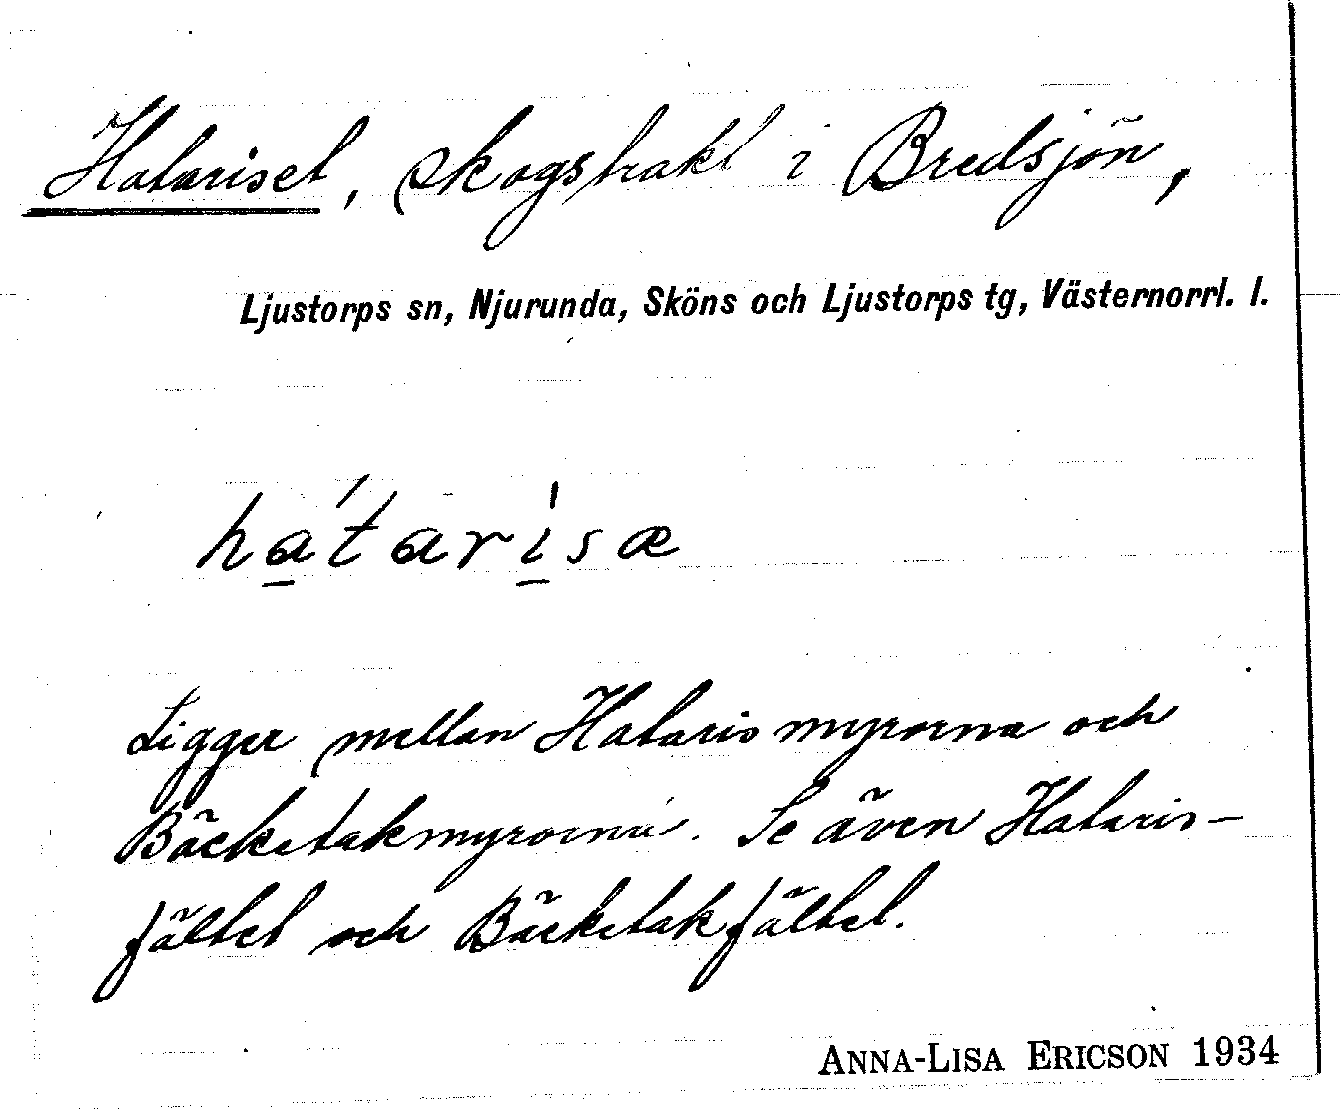 Hatariset, skogstrakt i Bredsjön,
Ljustorps sn, Njurunda, Sköns och Ljustorps tg, Västernorrl. l.
ha̲´tari̲ˈsæ
Ligger mellan Hatarismyrorna och
Bäckstakmyrorna. Se även Hataris-
fältet och Bäckstakfältet.
ANNA-LISA ERICSON 1934